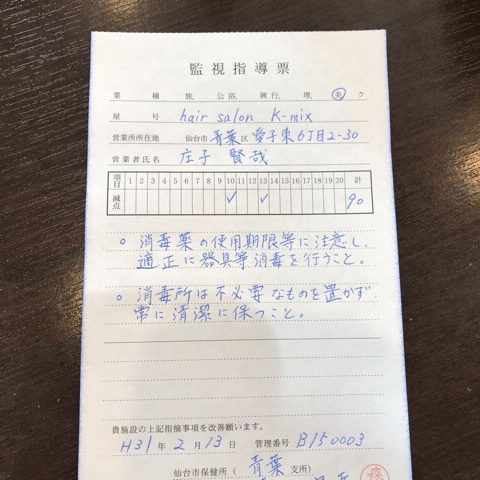 監視指導票
業種 旅. 公浴. 興行. 理. 美. ク
屋号 hair salon K-mix
営業所所在地 仙台市 青葉 区 愛子東6丁目2-30
営業者氏名 庄子 賢哉
項目 1 2 3 4 5 6 7 8 9 10 11 12 13 14 15 16 17 18 19 20 計
減点 ✓ ✓ 90
○ 消毒薬の使用期限等に注意し、
適正に器具等消毒を行うこと。
○ 消毒所は不必要なものを置かず
常に清潔に保つこと。
貴施設の上記指摘事項を改善願います。
H31 年 2 月 13 日 管理番号 B150003
仙台市保健所 ( 青葉 支所 )